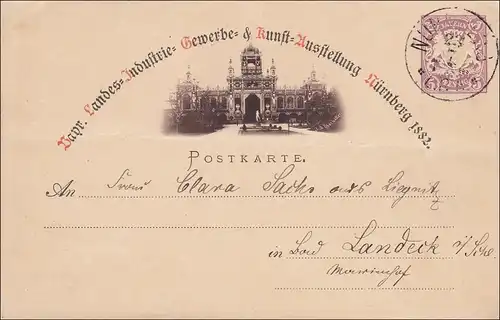 Bayr. Landes-Industrie- Gewerbe- & Kunst-Ausstellung Nürnberg 1882.
POSTKARTE.
An Frau Clara Sachs aus Liegnitz
in Bad Landeck i/Schl
Marienhof